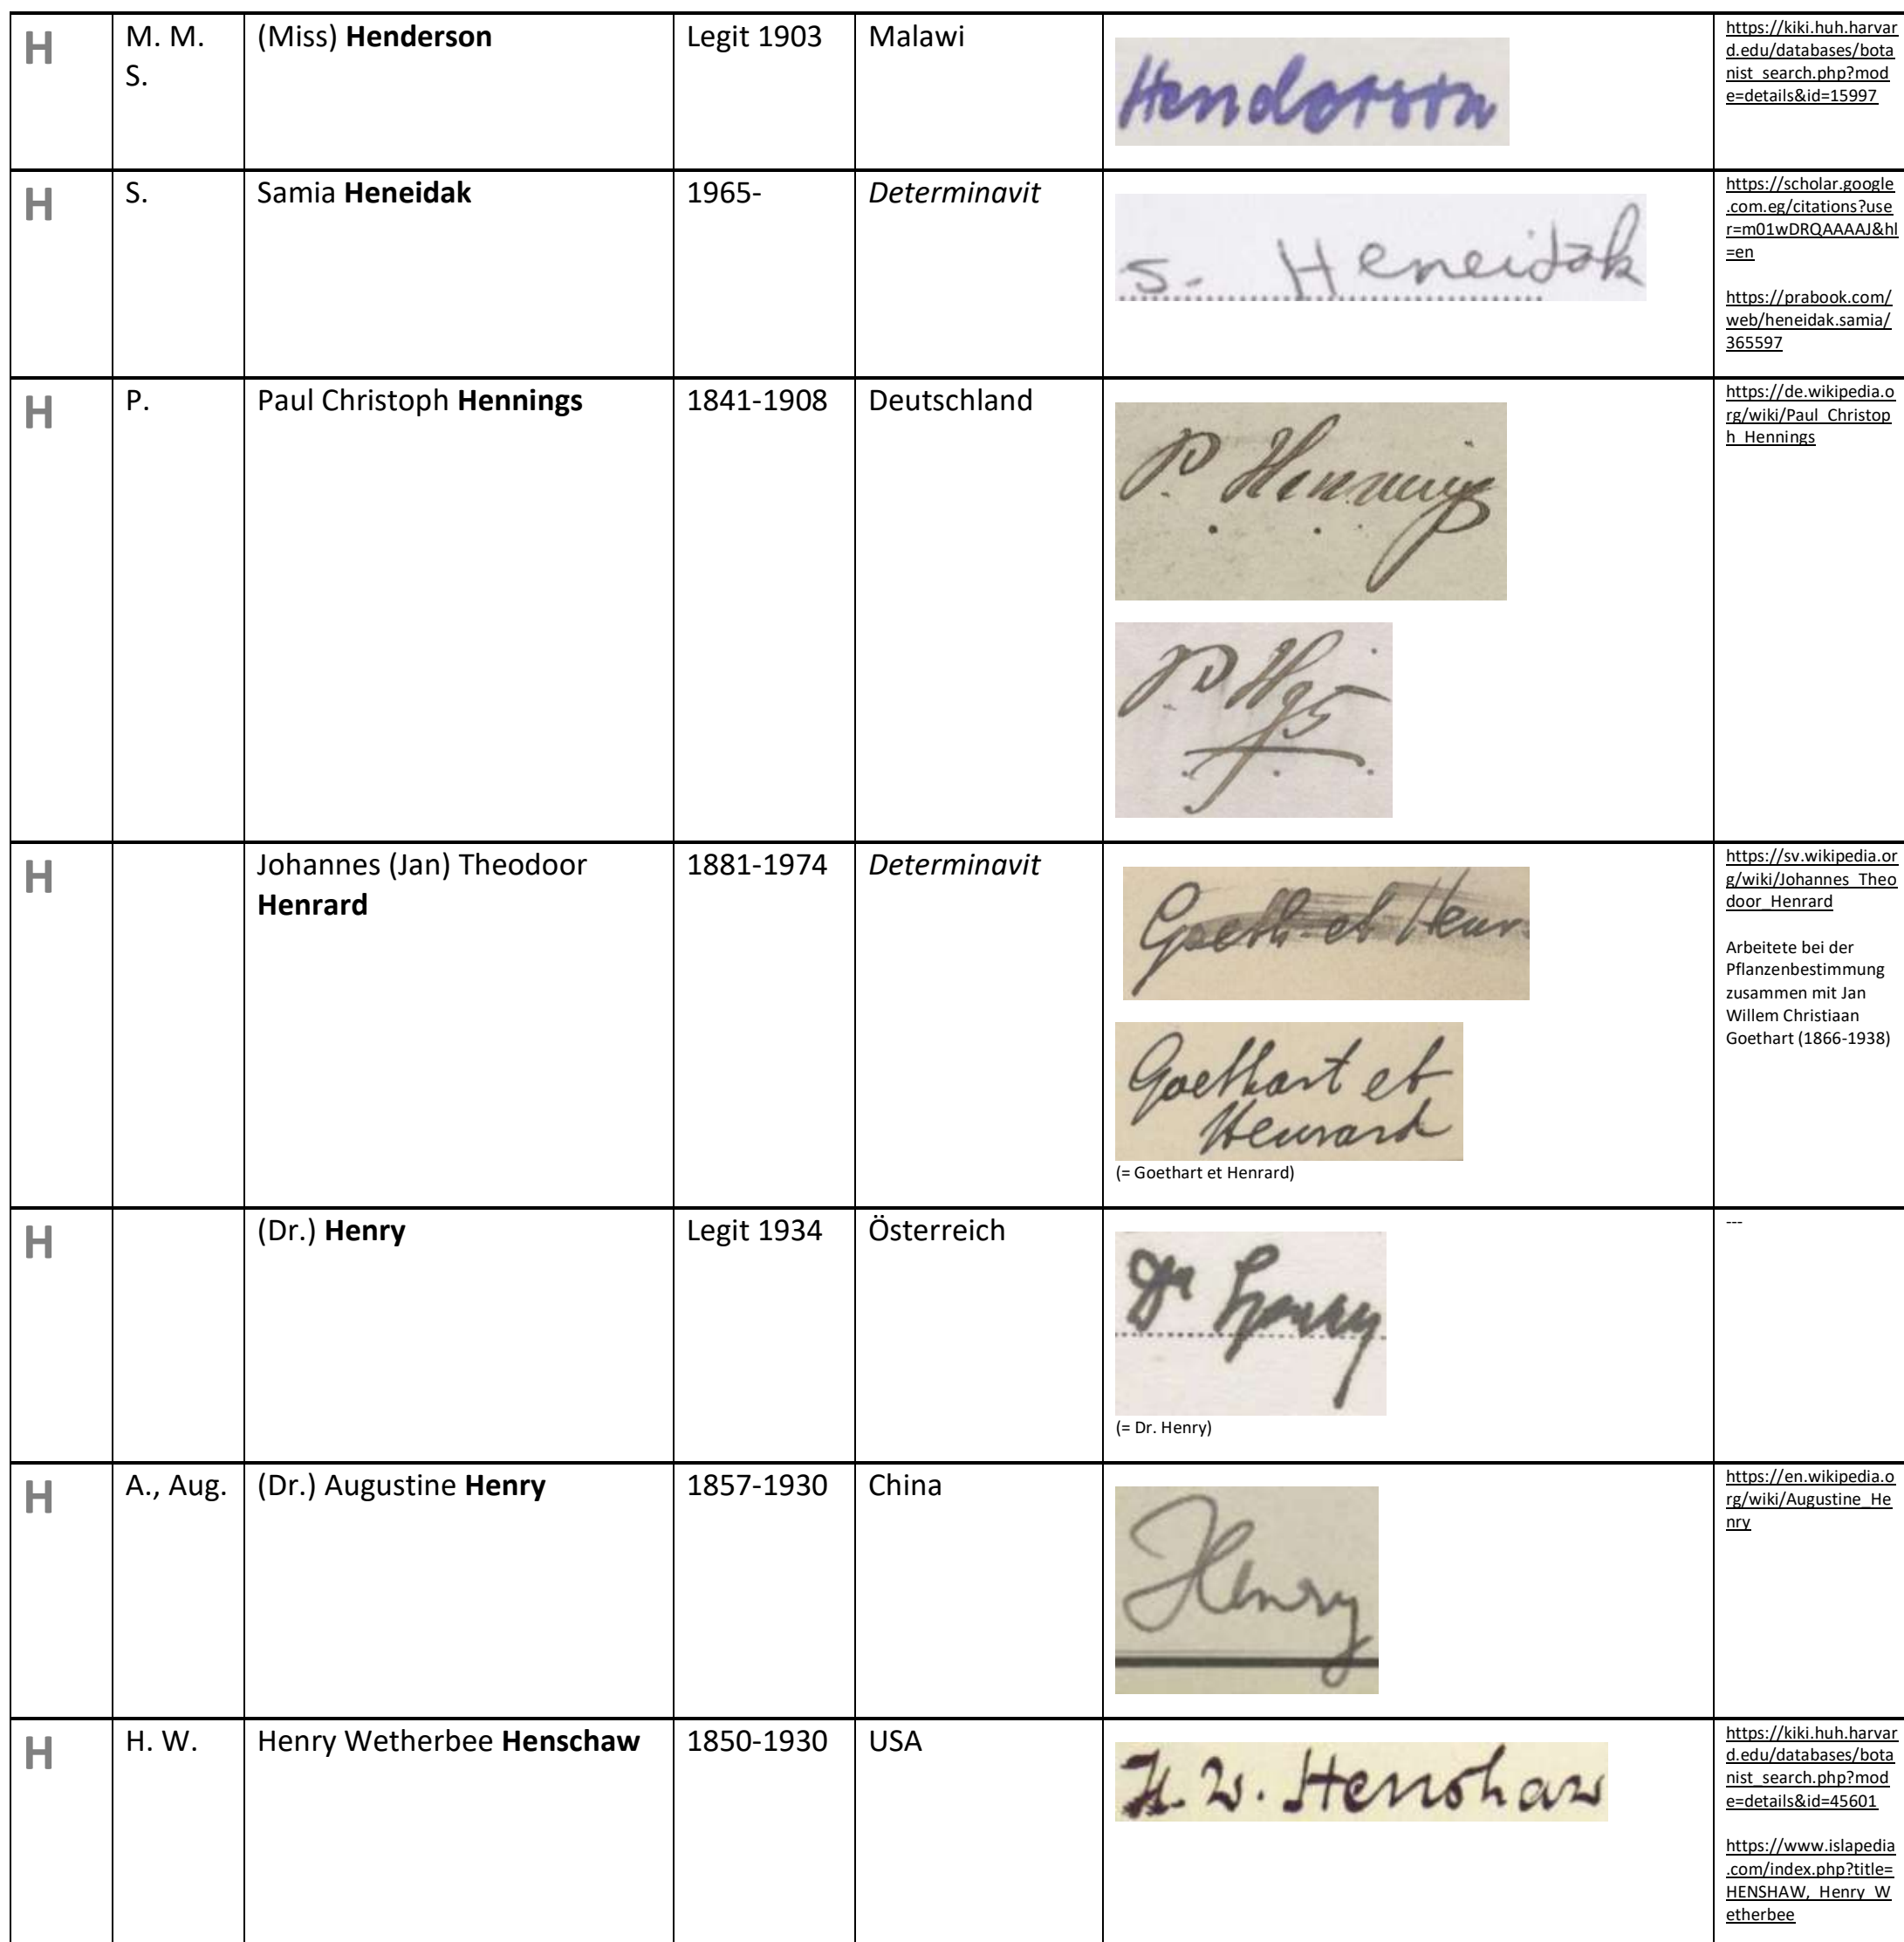 H
M. M.
S.
(Miss) Henderson
Legit 1903
Malawi
Henderson
https://kiki.huh.harvar
d.edu/databases/bota
nist_search.php?mod
e=details&id=15997
H
S.
Samia Heneidak
1965-
Determinavit
S. Heneidak
https://scholar.google
.com.eg/citations?use
r=m01wDRQAAAAJ&hl
=en
https://prabook.com/
web/heneidak.samia/
365597
H
P.
Paul Christoph Hennings
1841-1908
Deutschland
P. Hennings
P. Hgs
https://de.wikipedia.o
rg/wiki/Paul_Christop
h_Hennings
H
Johannes (Jan) Theodoor
Henrard
1881-1974
Determinavit
Goeth. et Henr.
Goethart et
Henrard
(= Goethart et Henrard)
https://sv.wikipedia.or
g/wiki/Johannes_Theo
door_Henrard
Arbeitete bei der
Pflanzenbestimmung
zusammen mit Jan
Willem Christiaan
Goethart (1866-1938)
H
(Dr.) Henry
Legit 1934
Österreich
Dr Henry
(= Dr. Henry)
---
H
A., Aug.
(Dr.) Augustine Henry
1857-1930
China
Henry
https://en.wikipedia.o
rg/wiki/Augustine_He
nry
H
H. W.
Henry Wetherbee Henschaw
1850-1930
USA
H. W. Henshaw
https://kiki.huh.harvar
d.edu/databases/bota
nist_search.php?mod
e=details&id=45601
https://www.islapedia
.com/index.php?title=
HENSHAW,_Henry_W
etherbee